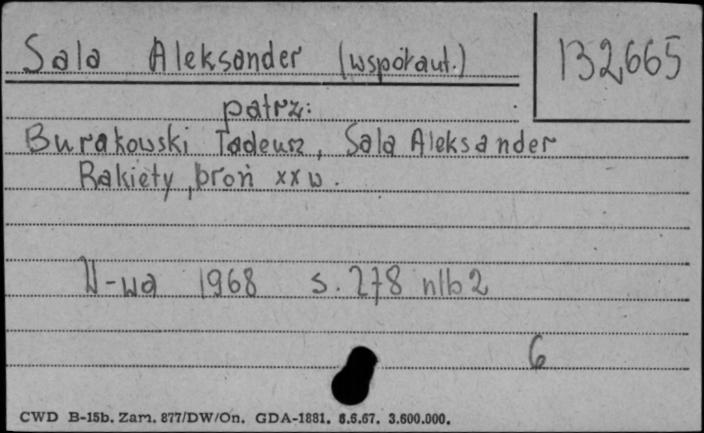 Sala Aleksander (współaut.)
132665
patrz:
Burakowski Tadeusz, Sala Aleksander
Rakiety, broń xx w.
W-wa 1968 s. 278 nlb 2
6
CWD B-15b. Zam. 877/DW/On. GDA-1881. 6.6.67. 3.600.000.